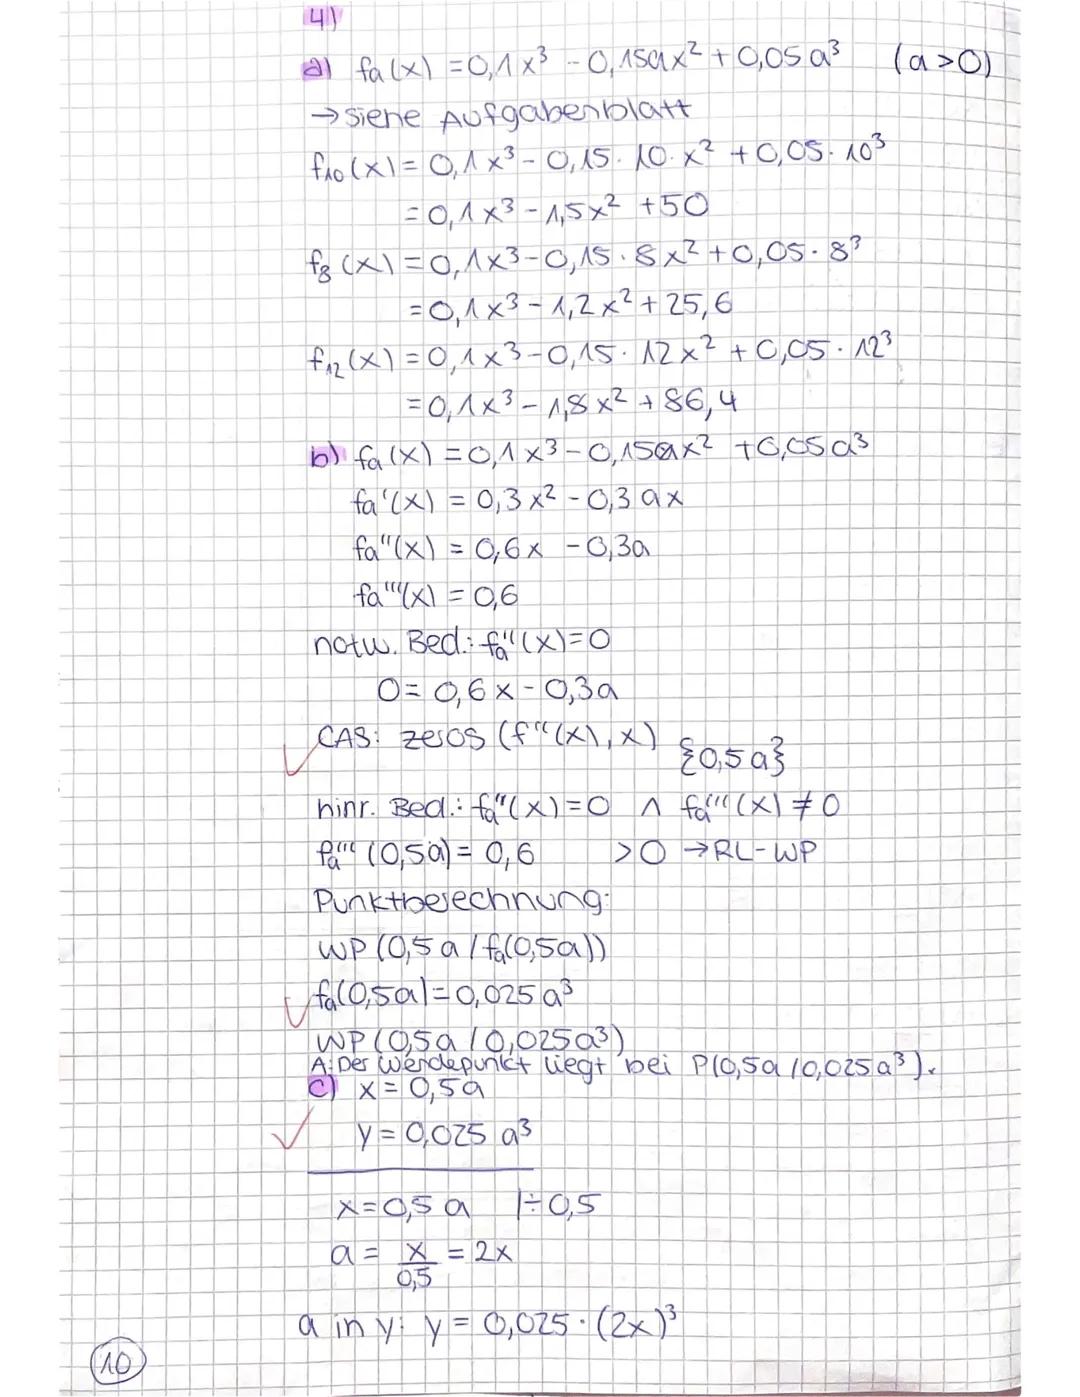 4)
a) fa(x) = 0,1x³ - 0,15ax² + 0,05a³ (a>0)
→ siehe Aufgabenblatt
f₁₀(x) = 0,1x³ - 0,15·10·x² + 0,05·10³
= 0,1x³ - 1,5x² + 50
f₈(x) = 0,1x³ - 0,15·8x² + 0,05·8³
= 0,1x³ - 1,2x² + 25,6
f₁₂(x) = 0,1x³ - 0,15·12x² + 0,05·12³
= 0,1x³ - 1,8x² + 86,4
b) fa(x) = 0,1x³ - 0,15ax² + 0,05a³
fa'(x) = 0,3x² - 0,3ax
fa''(x) = 0,6x - 0,3a
fa'''(x) = 0,6
notw. Bed.: fa''(x) = 0
0 = 0,6x - 0,3a
CAS: zeros (f''(x), x) {0,5a}
hinr. Bed.: fa''(x) = 0 ∧ fa'''(x) ≠ 0
fa'''(0,5a) = 0,6 > 0 → RL-WP
Punktberechnung:
WP (0,5a / fa(0,5a))
fa(0,5a) = 0,025a³
WP (0,5a / 0,025a³)
A: Der Wendepunkt liegt bei P(0,5a / 0,025a³).
c) x = 0,5a
y = 0,025 a³
x = 0,5a |÷0,5
a = x/0,5 = 2x
a in y: y = 0,025·(2x)³
10